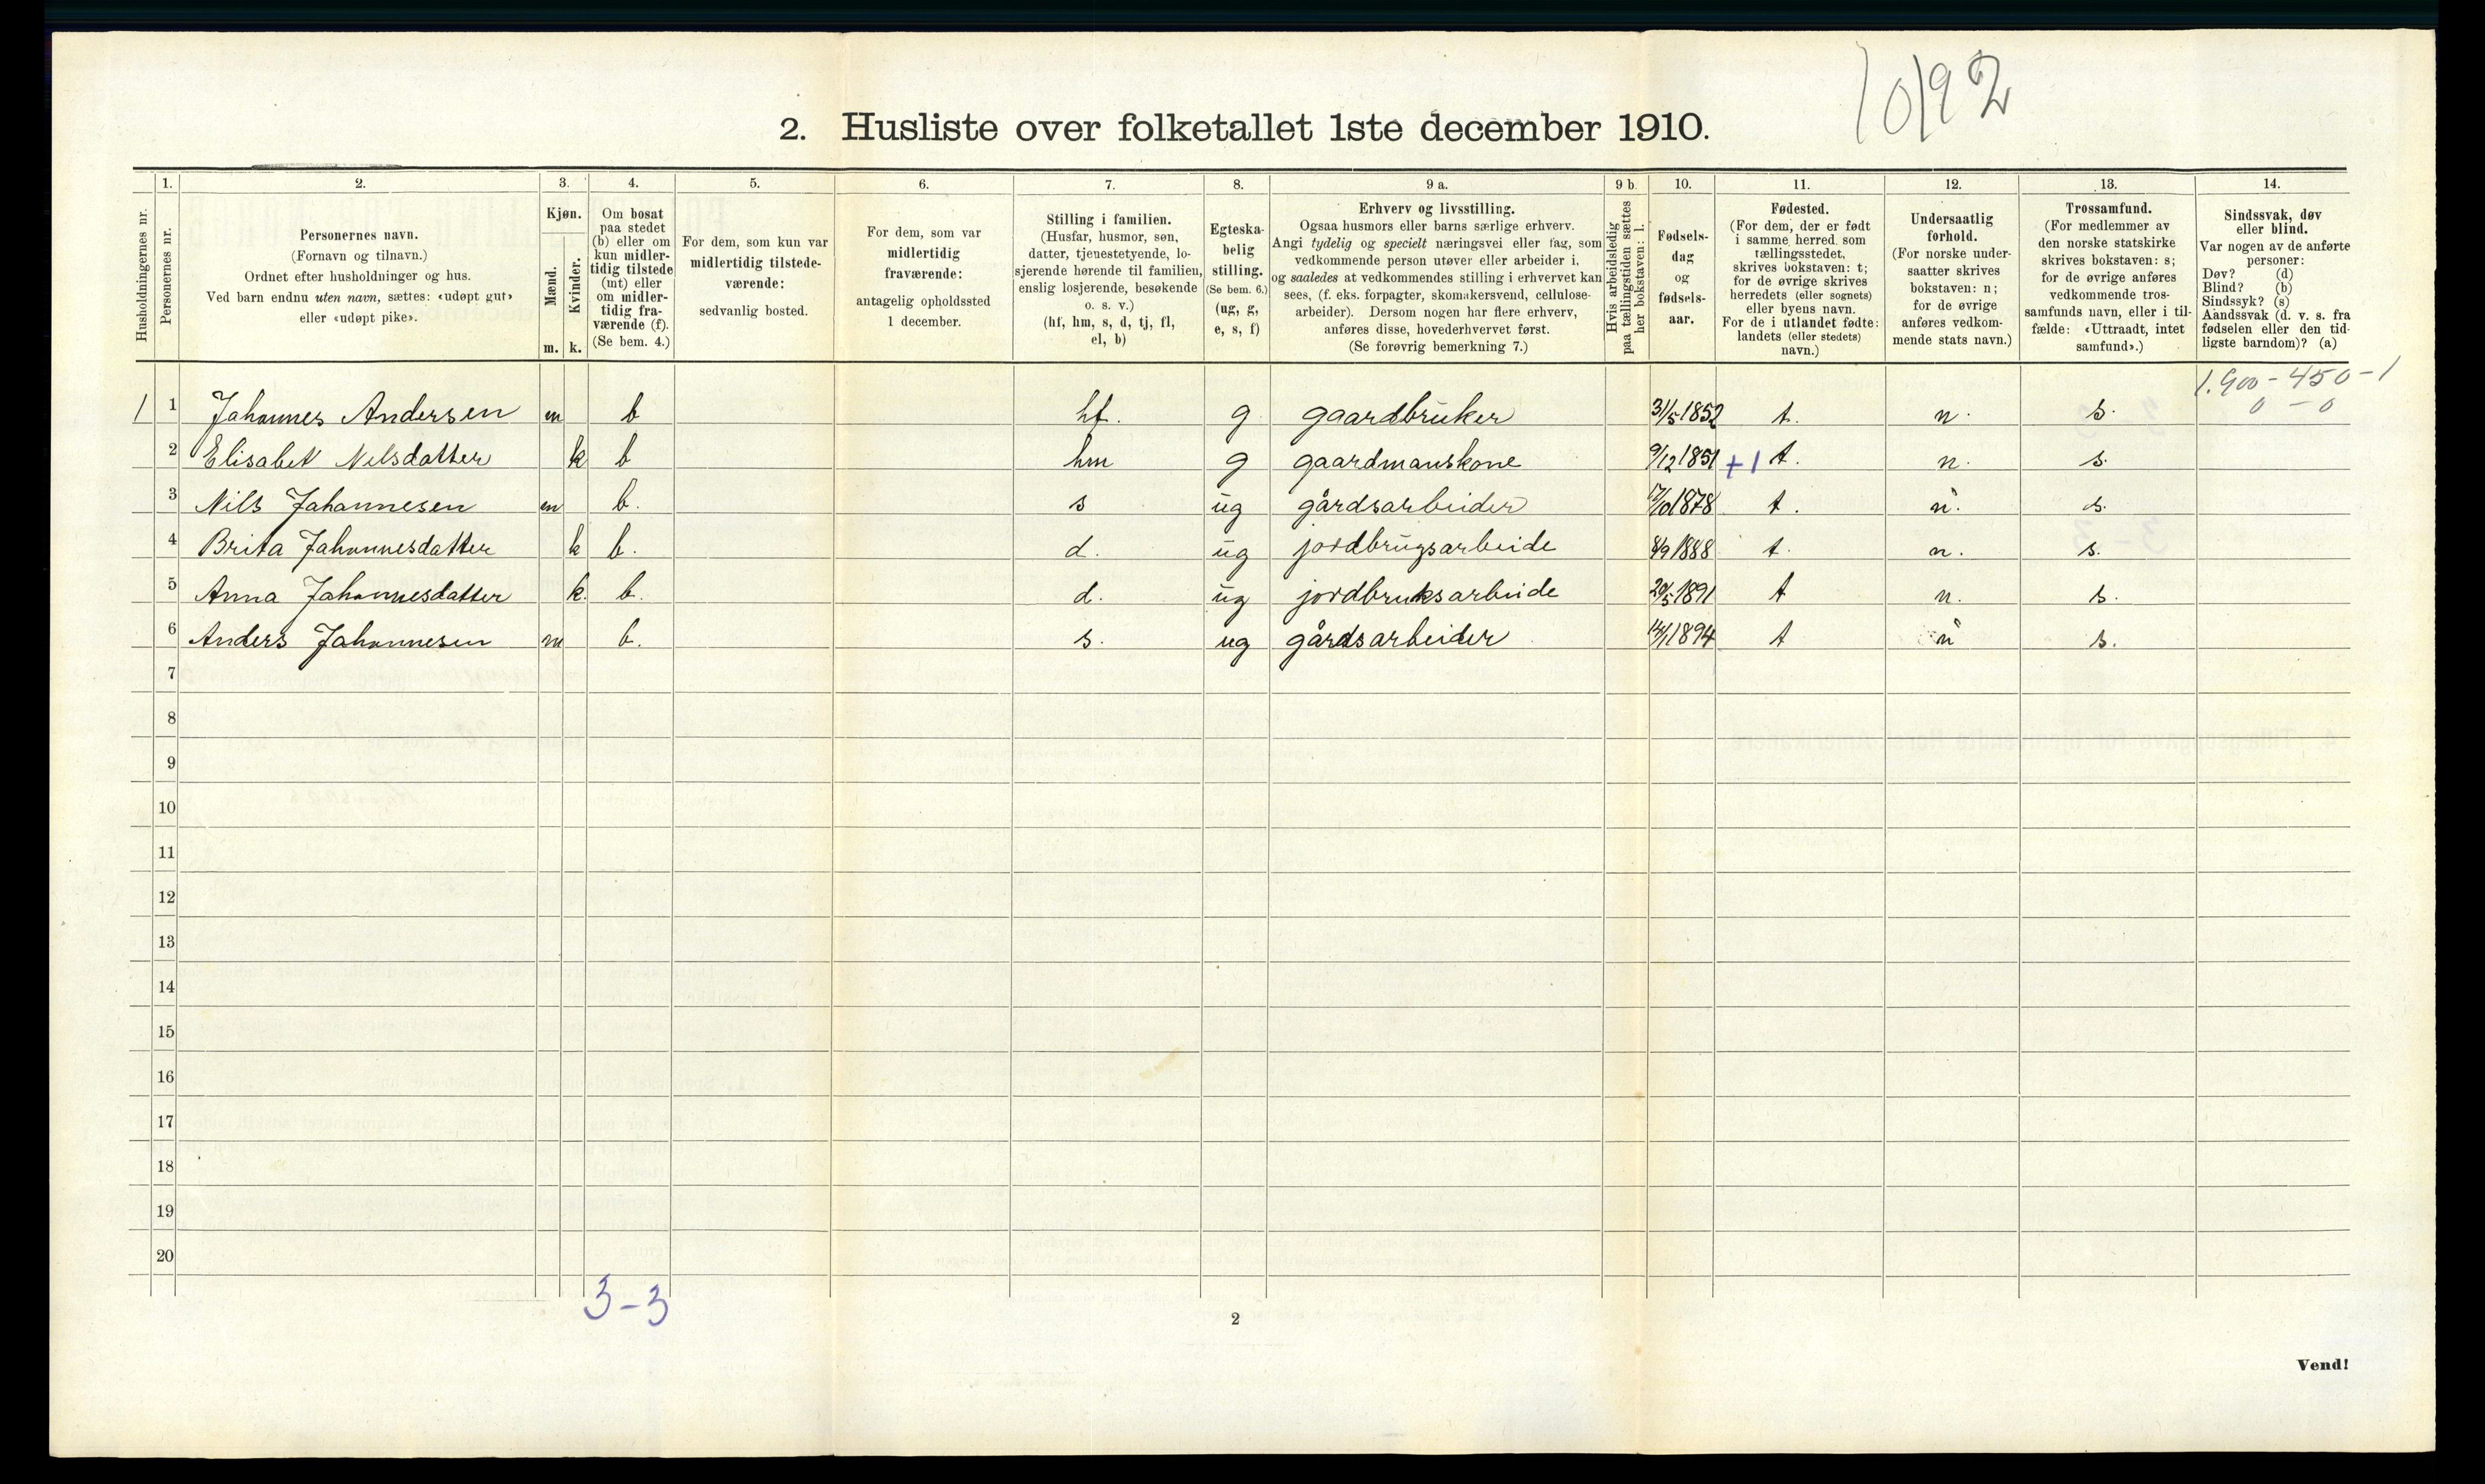 10192
2. Husliste over folketallet 1ste december 1910.
Husholdningernes nr.
1.
Personernes nr.
2.
Personernes navn.
(Fornavn og tilnavn.)
Ordnet efter husholdninger og hus.
Ved barn endnu uten navn, sættes: «udøpt gut»
eller «udøpt pike».
3.
Kjøn.
Mænd.
Kvinder.
m. k.
4.
Om bosat
paa stedet
(b) eller om
kun midler-
tidig tilstede
(mt) eller
om midler-
tidig fra-
værende (f).
(Se bem. 4.)
5.
For dem, som kun var
midlertidig tilstede-
værende:
sedvanlig bosted.
6.
For dem, som var
midlertidig
fraværende:
antagelig opholdssted
1 december.
7.
Stilling i familien.
(Husfar, husmor, søn,
datter, tjenestetyende, lo-
sjerende hørende til familien,
enslig losjerende, besøkende
o. s. v.)
(hf, hm, s, d, tj, fl,
el, b)
8.
Egteska-
belig
stilling.
(Se bem. 6.)
(ug, g,
e, s, f)
9 a.
Erhverv og livsstilling.
Ogsaa husmors eller barns særlige erhverv.
Angi tydelig og specielt næringsvei eller fag, som
vedkommende person utøver eller arbeider i,
og saaledes at vedkommendes stilling i erhvervet kan
sees, (f. eks. forpagter, skomakersvend, cellulose-
arbeider). Dersom nogen har flere erhverv,
anføres disse, hovederhvervet først.
(Se forøvrig bemerkning 7.)
9 b.
Hvis arbeidsledig
paa tællingstiden sættes
her bokstaven: l.
10.
Fødsels-
dag
og
fødsels-
aar.
11.
Fødested.
(For dem, der er født
i samme herred som
tællingsstedet,
skrives bokstaven: t;
for de øvrige skrives
herredets (eller sognets)
eller byens navn.
For de i utlandet fødte:
landets (eller stedets)
navn.)
12.
Undersaatlig
forhold.
(For norske under-
saatter skrives
bokstaven: n;
for de øvrige
anføres vedkom-
mende stats navn.)
13.
Trossamfund.
(For medlemmer av
den norske statskirke
skrives bokstaven: s;
for de øvrige anføres
vedkommende tros-
samfunds navn, eller i til-
fælde: «Uttraadt, intet
samfund».)
14.
Sindssvak, døv
eller blind.
Var nogen av de anførte
personer:
Døv? (d)
Blind? (b)
Sindssyk? (s)
Aandssvak (d. v. s. fra
fødselen eller den tid-
ligste barndom)? (a)
1.900 - 450 - 1
0 - 0
1 1 Johannes Andersen m b hf. g gaardbruker 31/5 1852 t. n. s.
2 Elisabet Nelsdatter k b hm g gaardmanskone 9/12 1851 +1 t. n. s.
3 Nils Johannesen m b. s ug gårdsarbeider 1878 t. n. s.
4 Brita Johannesdatter k b. d. ug jordbrugsarbeide 8/9 1888 t. n. s.
5 Anna Johannesdatter k. b. d. ug jordbruksarbeide 20/5 1891 t n. s.
6 Anders Johannesen m b. s. ug gårdsarbeider 14/1 1894 t n s.
7
8
9
10
11
12
13
14
15
16
17
18
19
20
3-3
2
Vend!